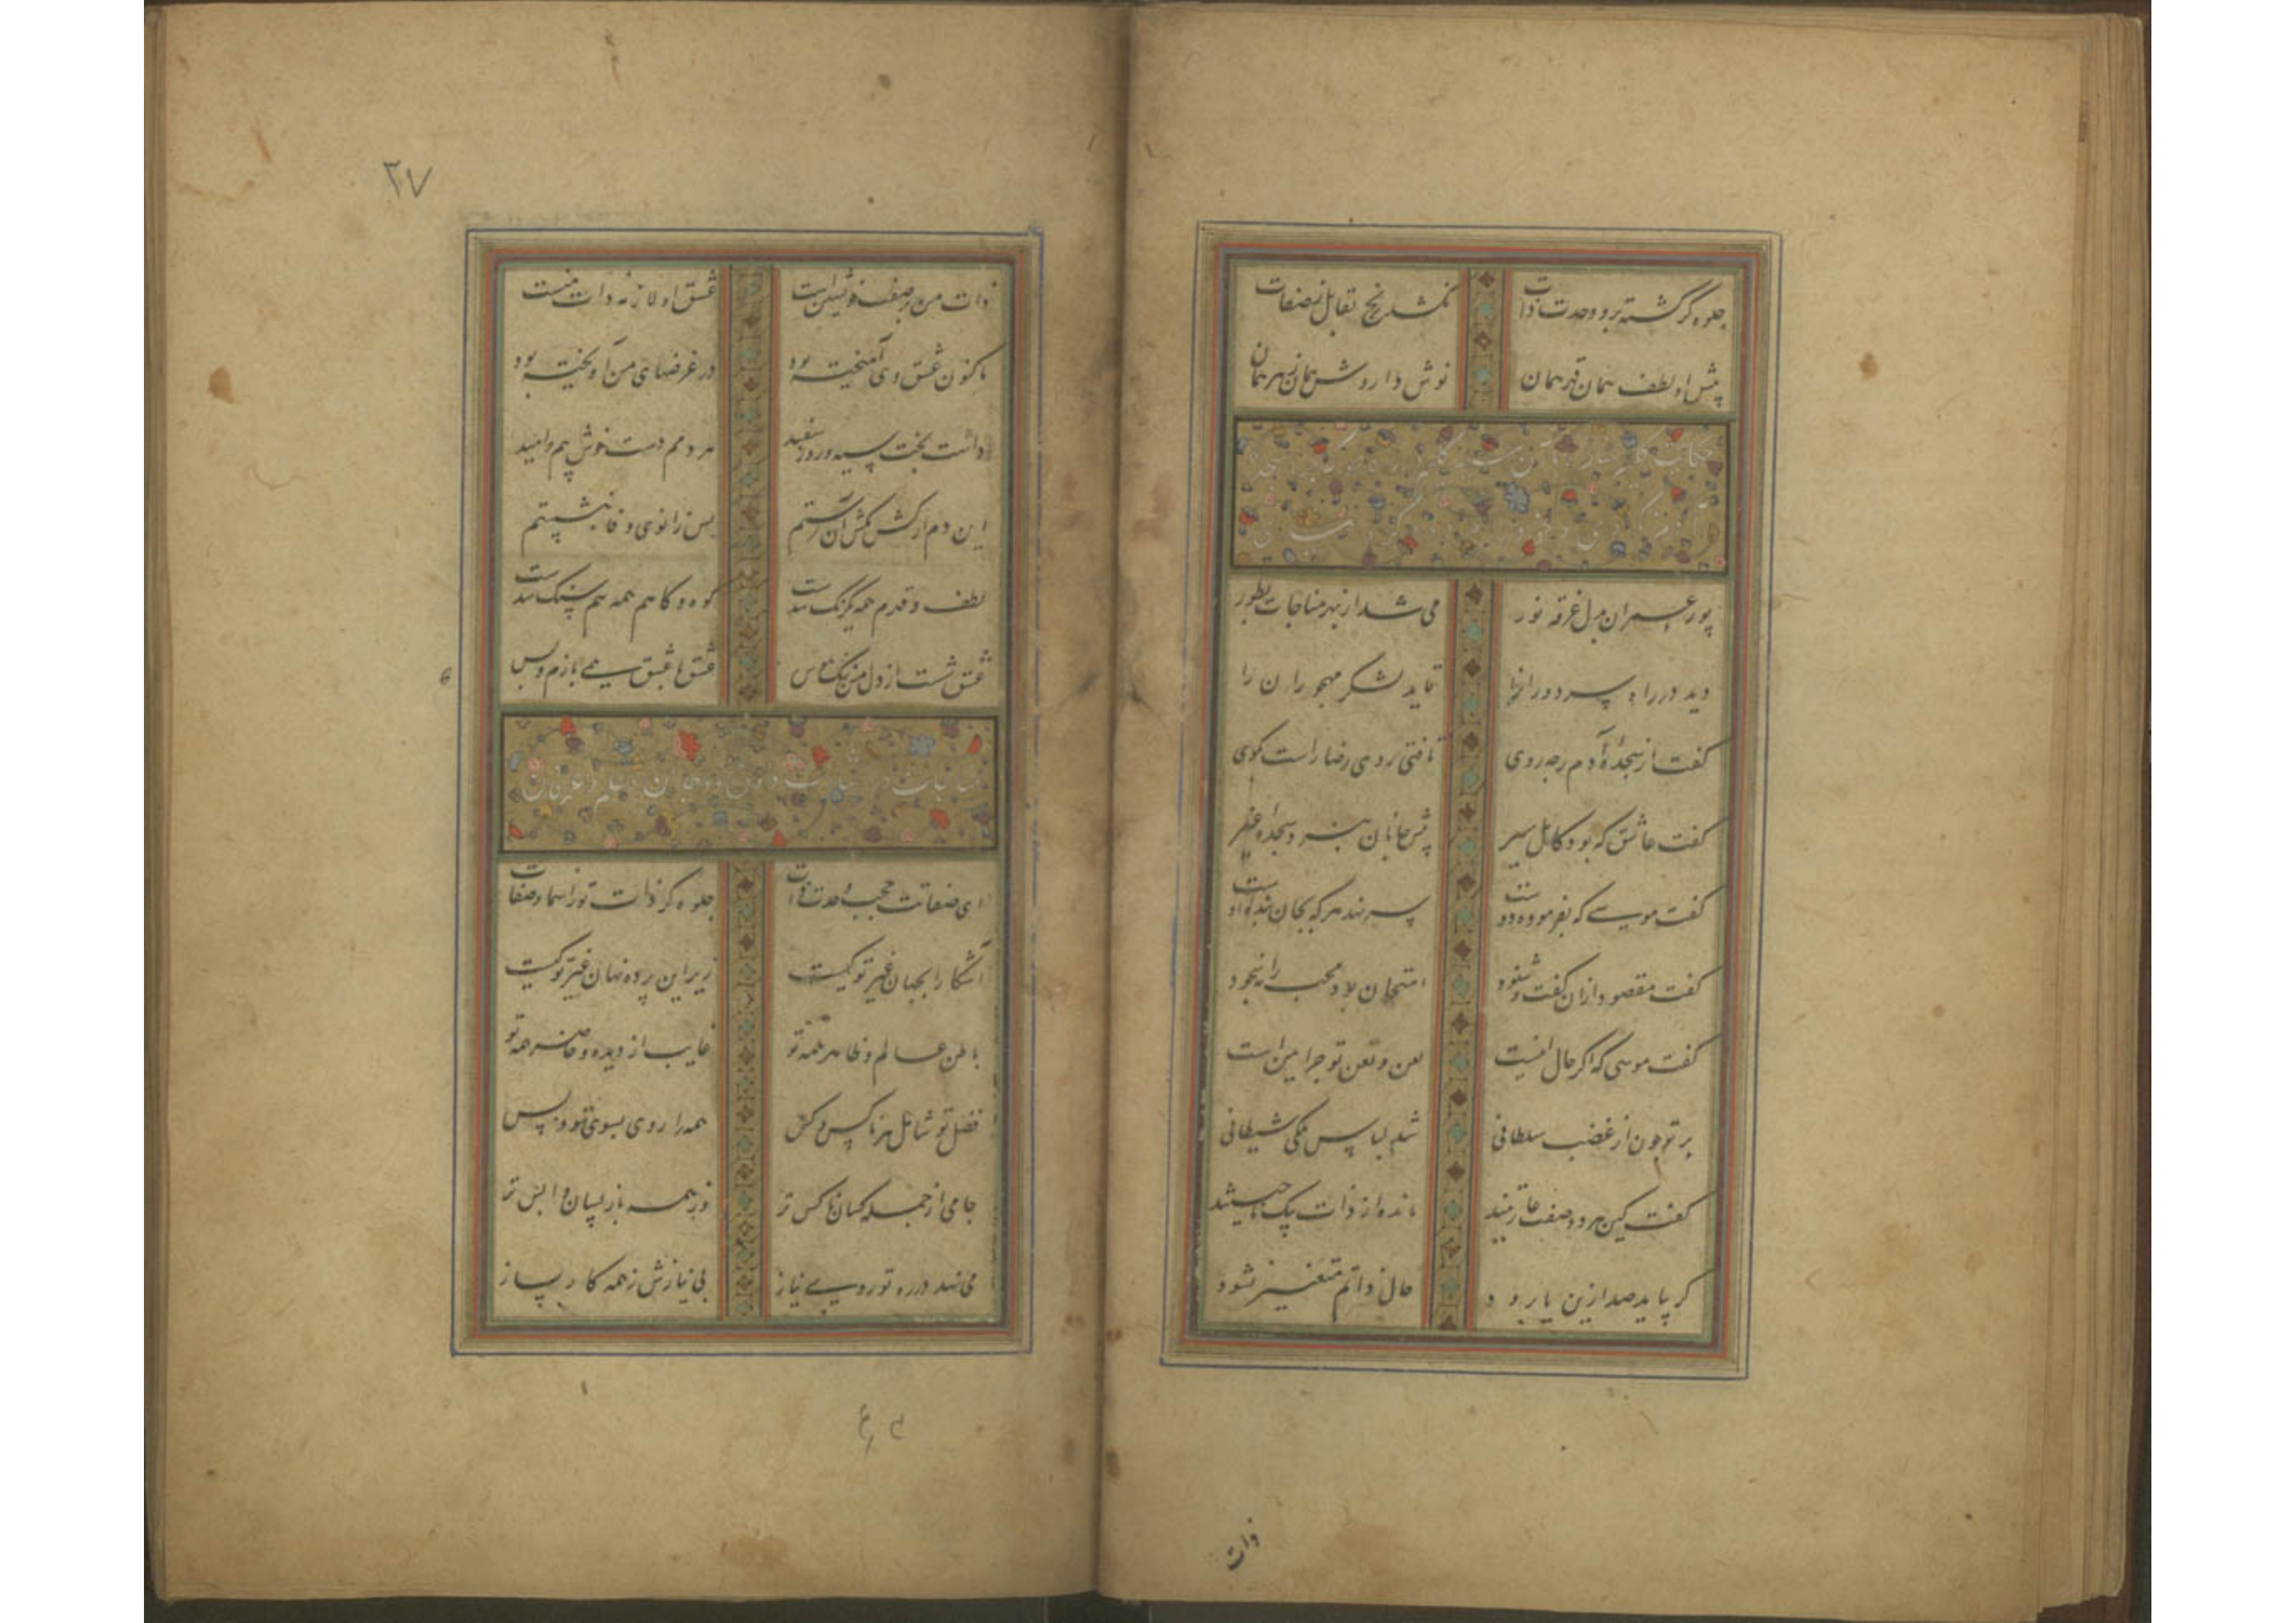 جلوه گر گشته برو وحدت ذات
نکشد رنج تقابل ز صفات
پیش او لطف همان قهر همان
نوش دارو ش همان زهر همان
حکایت
پور عمران بدلی غرقه نور
می شد از بهر مناجات بطور
دید در راه سر دوران را
قاید لشکر مهجوران را
گفت از سجدهٔ آدم ز چه روی
تافتی روی رضا راست گوی
گفت عاشق که بود کامل سیر
پیش جانان نبرد سجدهٔ غیر
گفت موسی که بفرمودهٔ دوست
سر نهد هر که بجان بندهٔ اوست
گفت مقصود ازان گفت و شنود
امتحان بود محب را نه سجود
گفت موسی که اگر حال اینست
لعن و طعن تو چرا آیین است
بر تو چون از غضب سلطانی
شد لباس ملکی شیطانی
گفت کین هر دو صفت عاریتند
مانده از ذات بیک ناحیتند
گر بیاید صد ازین یا برود
حال ذاتم متغیر نشود
ذات
۲۷
ذات من بر صفت خویشتن است
عشق او لازمهٔ ذات منست
تاکنون عشق وی آمیخته بود
در غرضهای من آویخته بود
داشت بخت سیه و روز سفید
هر دمم دست خوش بیم و امید
این دم از کشمکش آن رستم
پس زانوی وفا بنشستم
لطف و قهرم همه یکرنگ شدست
کوه و کاهم همه هم سنگ شدست
عشق شست از دل من نقش هوس
عشق با عشق همی بازم و بس
ای صفاتت حجب وحدت ذات
جلوه گر ذات تو ز اسما و صفات
آشکارا بجهان غیر تو کیست
زیر این پرده نهان غیر تو کیست
باطن عالم و ظاهر همه تو
غایب از دیده و حاضر همه تو
فضل تو شامل هر ناکس و کس
همه را روی بسوی تو و بس
جامی از جمله کسان ناکس تر
وز همه باز پسان واپس تر
می نهد در ره تو روی نیاز
بی نیازش ز همه کار بساز